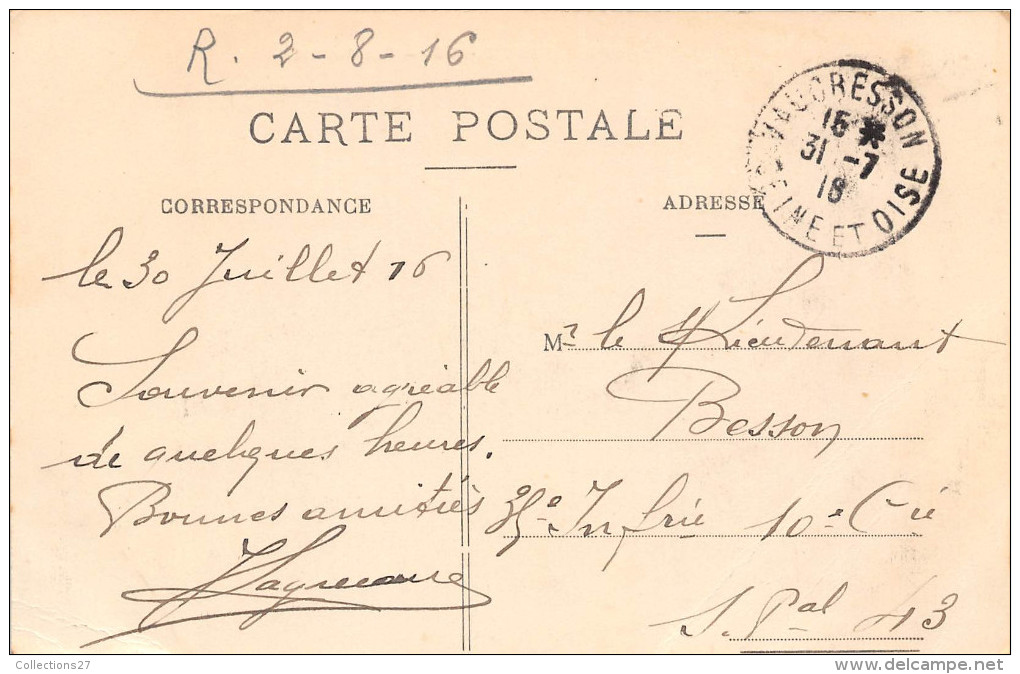 R. 2-8-16
CARTE POSTALE
VAUCRESSON
15 *
31 -7
16
SEINE ET OISE
CORRESPONDANCE
le 30 Juillet 16
Souvenir agréable
de quelques heures.
Bonnes amitiés
ADRESSE
Mr le Lieutenant
Besson
35e Infrie 10e Cie
S. Pal 43
Collections27
delcampe.net